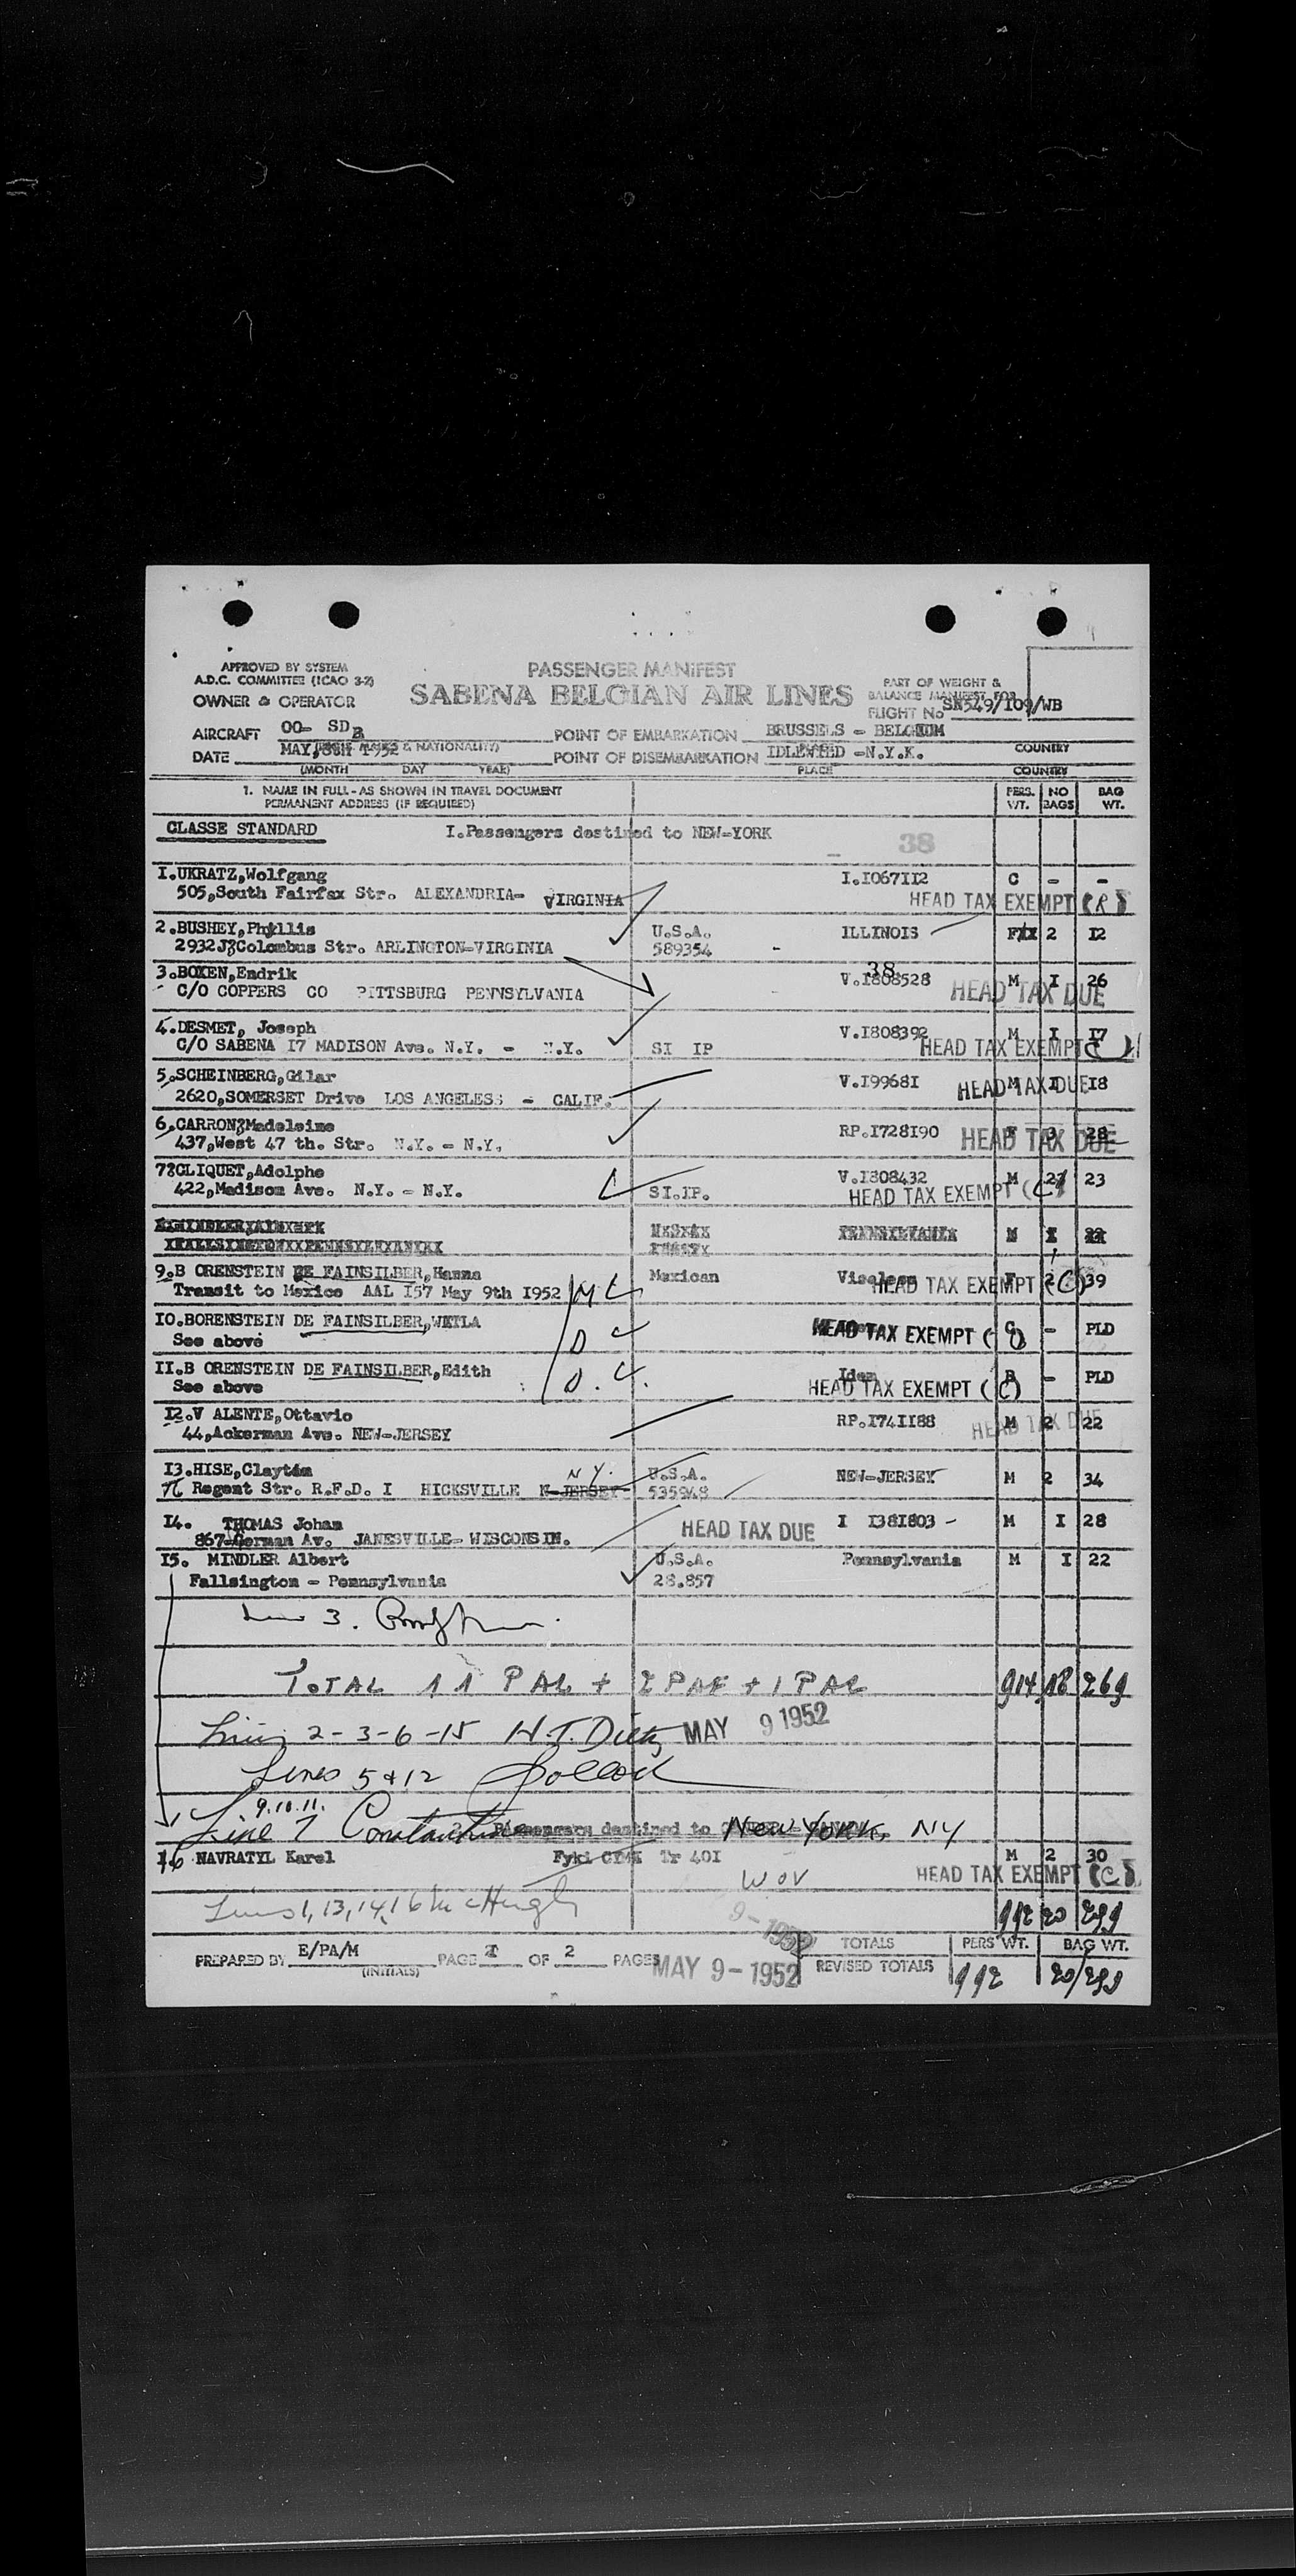 APPROVED BY SYSTEM
A.D.C. COMMITTEE (ICAO 3-2)
OWNER & OPERATOR
PASSENGER MANIFEST
SABENA BELGIAN AIR LINES
PART OF WEIGHT &
BALANCE MANIFEST FOR
FLIGHT No SN549/109/WB
AIRCRAFT OO- SDB
POINT OF EMBARKATION BRUSSELS - BELGIUM
& NATIONALITY)
COUNTRY
DATE MAY, 1952
POINT OF DISEMBARKATION IDLEWILD -N.Y.K.
(MONTH DAY YEAR)
PLACE
COUNTRY
1. NAME IN FULL - AS SHOWN IN TRAVEL DOCUMENT
PERMANENT ADDRESS (IF REQUIRED)
PERS. WT.
NO BAGS
BAG WT.
CLASSE STANDARD I.Passengers destined to NEW-YORK 38
I.UKRATZ,Wolfgang I.I067II2 C - -
505,South Fairfax Str. ALEXANDRIA- VIRGINIA HEAD TAX EXEMPT (R)
2.BUSHEY,Phyllis U.S.A. ILLINOIS 2 I2
2932J Colombus Str. ARLINGTON-VIRGINIA 589354 -
38
3.BOXEN,Endrik V.I808528 M I 26
C/O COPPERS CO PITTSBURG PENNSYLVANIA HEAD TAX DUE
4.DESMET, Joseph V.I808392 M I I7
C/O SABENA I7 MADISON Ave. N.Y. - N.Y. SI IP HEAD TAX EXEMPT
5.SCHEINBERG,Gilar V.I9968I M I I8
2620,SOMERSET Drive LOS ANGELESS - CALIF. HEAD TAX DUE
6.CARRON Madeleine RP.I728I90 F 3 28
437,West 47 th. Str. N.Y. - N.Y. HEAD TAX DUE
7 CLIQUET,Adolphe V.I808432 M 2 23
422,Madison Ave. N.Y. - N.Y. SI.IP. HEAD TAX EXEMPT (C)
9.B ORENSTEIN DE FAINSILBER,Hanna Mexican F 2 39
Transit to Mexico AAL I57 May 9th I952 HEAD TAX EXEMPT (C)
IO.BORENSTEIN DE FAINSILBER, C - PLD
See above HEAD TAX EXEMPT
II.B ORENSTEIN DE FAINSILBER,Edith Idem B - PLD
See above HEAD TAX EXEMPT (C)
I2.V ALENTE,Ottavio RP.I74II88 M 2 22
44,Ackerman Ave. NEW-JERSEY HEAD TAX DUE
I3.HISE,Clayton U.S.A. NEW-JERSEY M 2 34
Regent Str. R.F.D. I HICKSVILLE N-JERSEY N.Y. 535948
I4. THOMAS Johan I I38I803 - M I 28
867 German Av. JANESVILLE- WISCONSIN. HEAD TAX DUE
I5. MINDLER Albert U.S.A. Pennsylvania M I 22
Fallsington - Pennsylvania 28.857
3.
TOTAL 11 PAL + 2 PAF + 1 PAC 914 18 269
2-3-6-15 H.T. Dietz MAY 9 1952
Lines 5 & 12 Pollock
9.10.11.
Line 7 Constantine Passengers destined to New York, NY
16 NAVRATYL Karel Tr 40I M 2 30
WOV HEAD TAX EXEMPT (C)
Lines 1, 13, 14, 16 McHugh 992 20 299
9-1952
PREPARED BY E/PA/M PAGE OF 2 PAGES
(INITIALS)
MAY 9-1952
TOTALS PERS WT. BAG WT.
REVISED TOTALS 992 20/299